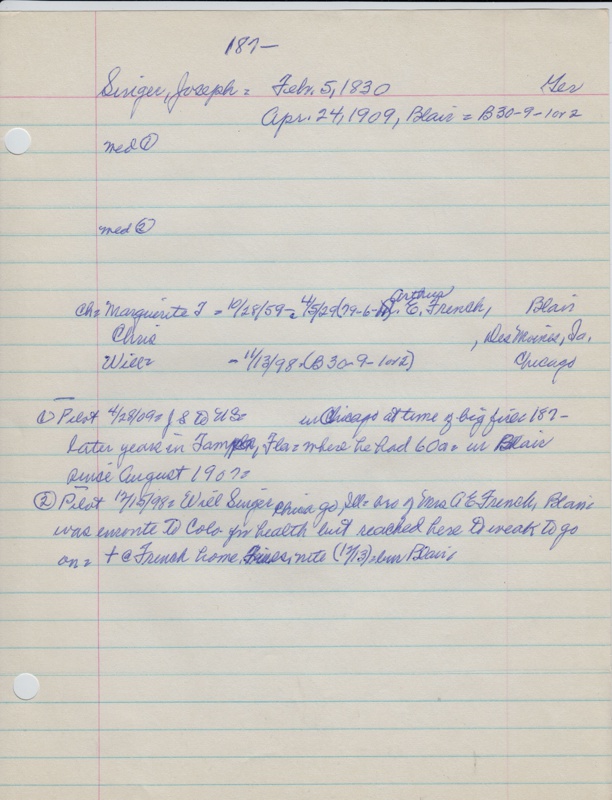 187-
Singer, Joseph = Febr. 5, 1830 Ger
Apr. 24, 1909, Blair = B30-9-1 or 2
med ①
med ②
ch= Marguerite T = 10/28/59 - 4/5/29 (79-6- A. Arthur E. French, Blair
Chris , Des Moines, Ia,
Will= - 11/13/98 (B30-9-1 or 2) Chicago
① Pilot 4/28/09 = J S to US= in Chicago at time of big fire= 187-
Later years in Tampa, Fla= where he had 60a= in Blair
since August 1907=
② Pilot 12/15/98= Will Singer Chicago, Ill= bro of Mrs A E French, Blair
was enroute to Colo for health but reached here to weak to go
on= + @ French home, nite (12/13) bur Blair